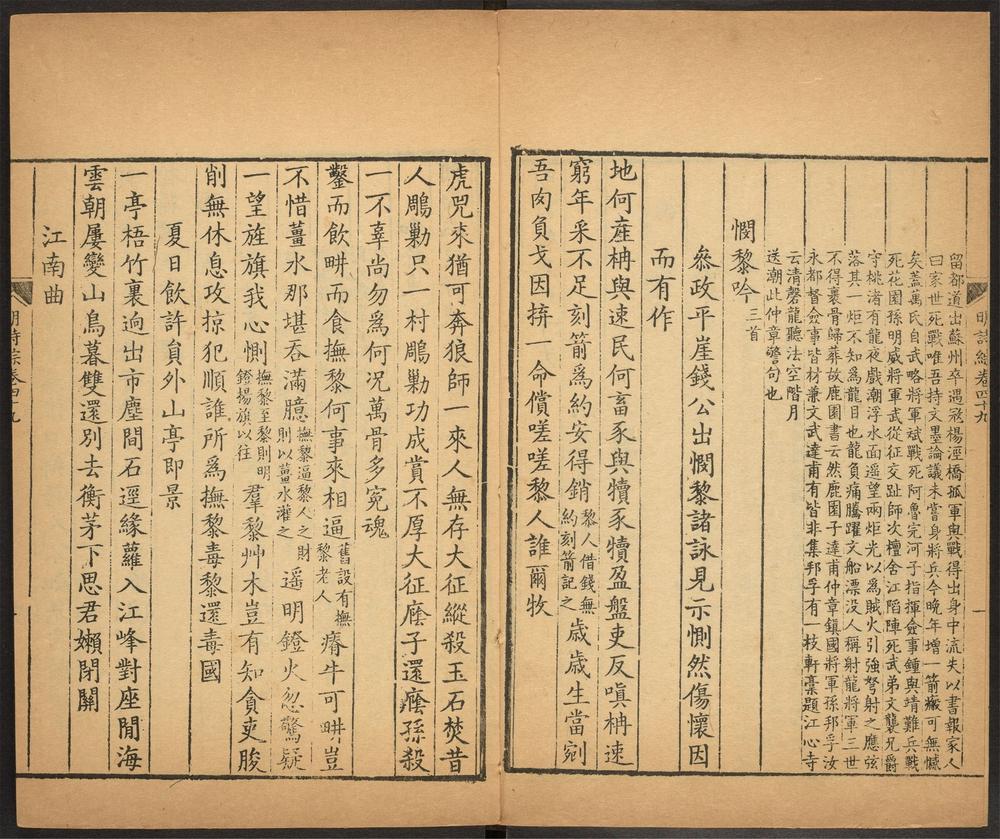 明詩綜卷四十九
一
留都道出蘇州卒遇冦楊涇橋孤軍與戰得出身中流失以書報家人
曰家世死戰唯吾持文墨論議未嘗身將兵今晚年增一箭瘢可無憾
矣蓋萬氏自武略將軍斌戰死阿魯完河子指揮僉事鍾與靖難兵戰
死花園孫明威將軍武從征交趾師次檀舍江陷陣死武弟文襲兄爵
守桃渚有龍夜戲潮浮水面遥望兩炬光以爲賊火引強弩射之應弦
落其一炬不知爲龍目也龍負痛騰躍文船漂没人稱射龍將軍三世
不得裹骨歸葬故鹿園書云然鹿園子達甫仲章鎮國將軍孫邦孚汝
永都督僉事皆材兼文武達甫有皆非集邦孚有一枝軒槀題江心寺
云清磬龍聽法空階月
送潮此仲章警句也
憫黎吟三首
叅政平崖錢公出憫黎諸詠見示惻然傷懷因
而有作
地何産枏與速民何畜豕與犢豕犢盈盤吏反嗔枏速
窮年采不足刻箭爲約安得銷黎人借錢無約刻箭記之歲歲生當剜
吾肉負戈因拚一命償嗟嗟黎人誰爾牧
虎兕來猶可奔狼師一來人無存大征縱殺玉石焚昔
人鵰勦只一村鵰勦功成賞不厚大征廕子還廕孫殺
一不辜尚勿爲何况萬骨多寃魂
鑿而飲畊而食撫黎何事來相逼舊設有撫黎老人瘠牛可畊豈
不惜薑水那堪吞滿臆撫黎逼黎人之財則以薑水灌之遥明鐙火忽驚疑
一望旌旗我心惻撫黎至黎則明鐙揚旗以往羣黎艸木豈有知貪吏朘
削無休息攻掠犯順誰所爲撫黎毒黎還毒國
夏日飲許員外山亭即景
一亭梧竹裏逈出市塵間石逕緣蘿入江峰對座閒海
雲朝屢變山鳥暮雙還別去衡茅下思君嬾閉關
江南曲